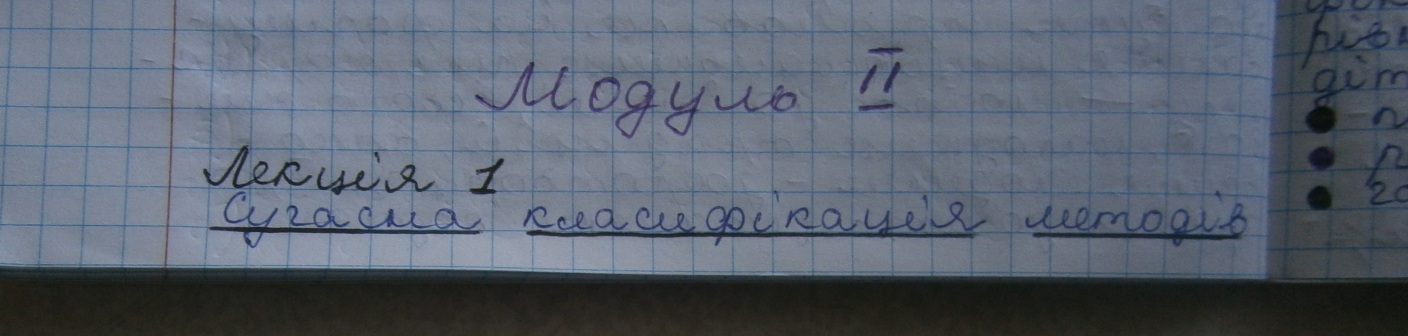 Модуль II
Лекція 1
Сучасна класифікація методів